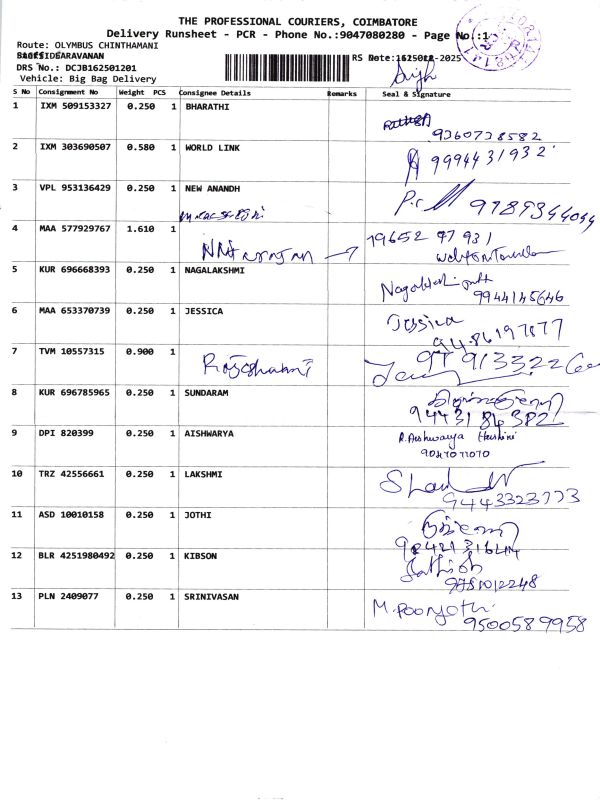 THE PROFESSIONAL COURIERS, COIMBATORE
Delivery Runsheet - PCR - Phone No.:9047080280 - Page No.:1
Route: OLYMBUS CHINTHAMANI
SARAVANAN
RS Date: -2025
DRS No.: DCJB162501201
Vehicle: Big Bag Delivery
S No Consignment No Weight PCS Consignee Details Remarks Seal & Signature
1 IXM 509153327 0.250 1 BHARATHI
9360738582
2 IXM 303690507 0.580 1 WORLD LINK
9994431932
3 VPL 953136429 0.250 1 NEW ANANDH
9789344044
4 MAA 577929767 1.610 1
19652 97931
5 KUR 696668393 0.250 1 NAGALAKSHMI
9944145646
6 MAA 653370739 0.250 1 JESSICA
Jessica
9486197877
7 TVM 10557315 0.900 1
8 KUR 696785965 0.250 1 SUNDARAM
9443184382
9 DPI 820399 0.250 1 AISHWARYA
R. Aishwarya Harshini
9047071070
10 TRZ 42556661 0.250 1 LAKSHMI
9443323773
11 ASD 10010158 0.250 1 JOTHI
12 BLR 4251980492 0.250 1 KIBSON
Sathish
9751012248
13 PLN 2409077 0.250 1 SRINIVASAN
M. Poonjothi
9500589958